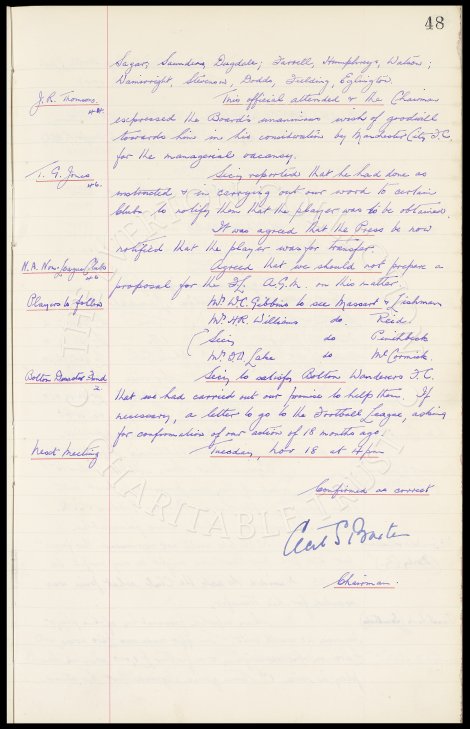 48
Sagar, Saunders, Dugdale; Farrell, Humphreys, Watson;
Wainwright, Stevenson, Dodds, Fielding, Eglington.
J.R. Thomson. This official attended & the Chairman
expressed the Board's unanimous wish of goodwill
towards him in his consideration by Manchester City F.C.
for the managerial vacancy.
T. G. Jones Secy reported that he had done as
instructed & in carrying out our word to certain
Clubs to notify them that the player was to be obtained.
It was agreed that the Press be now
notified that the player was for transfer.
N.A. Non-League Clubs Agreed that we should not prepare a
proposal for the F/L A.G.M. on this matter.
Players to follow Mr W.C. Gibbins to see Massart & Lishman
Mr H.R. Williams do. Reid.
Secy do Pinchbeck
do McCormick.
Bolton Disaster Fund Secy to satisfy Bolton Wanderers F.C.
that we had carried out our promise to help them. If
necessary, a letter to go to the Football League, asking
for confirmation of our action of 18 months ago.
Next Meeting Tuesday, Nov 18 at 4pm
Confirmed as correct
Chairman.
CHARITABLE TRUST